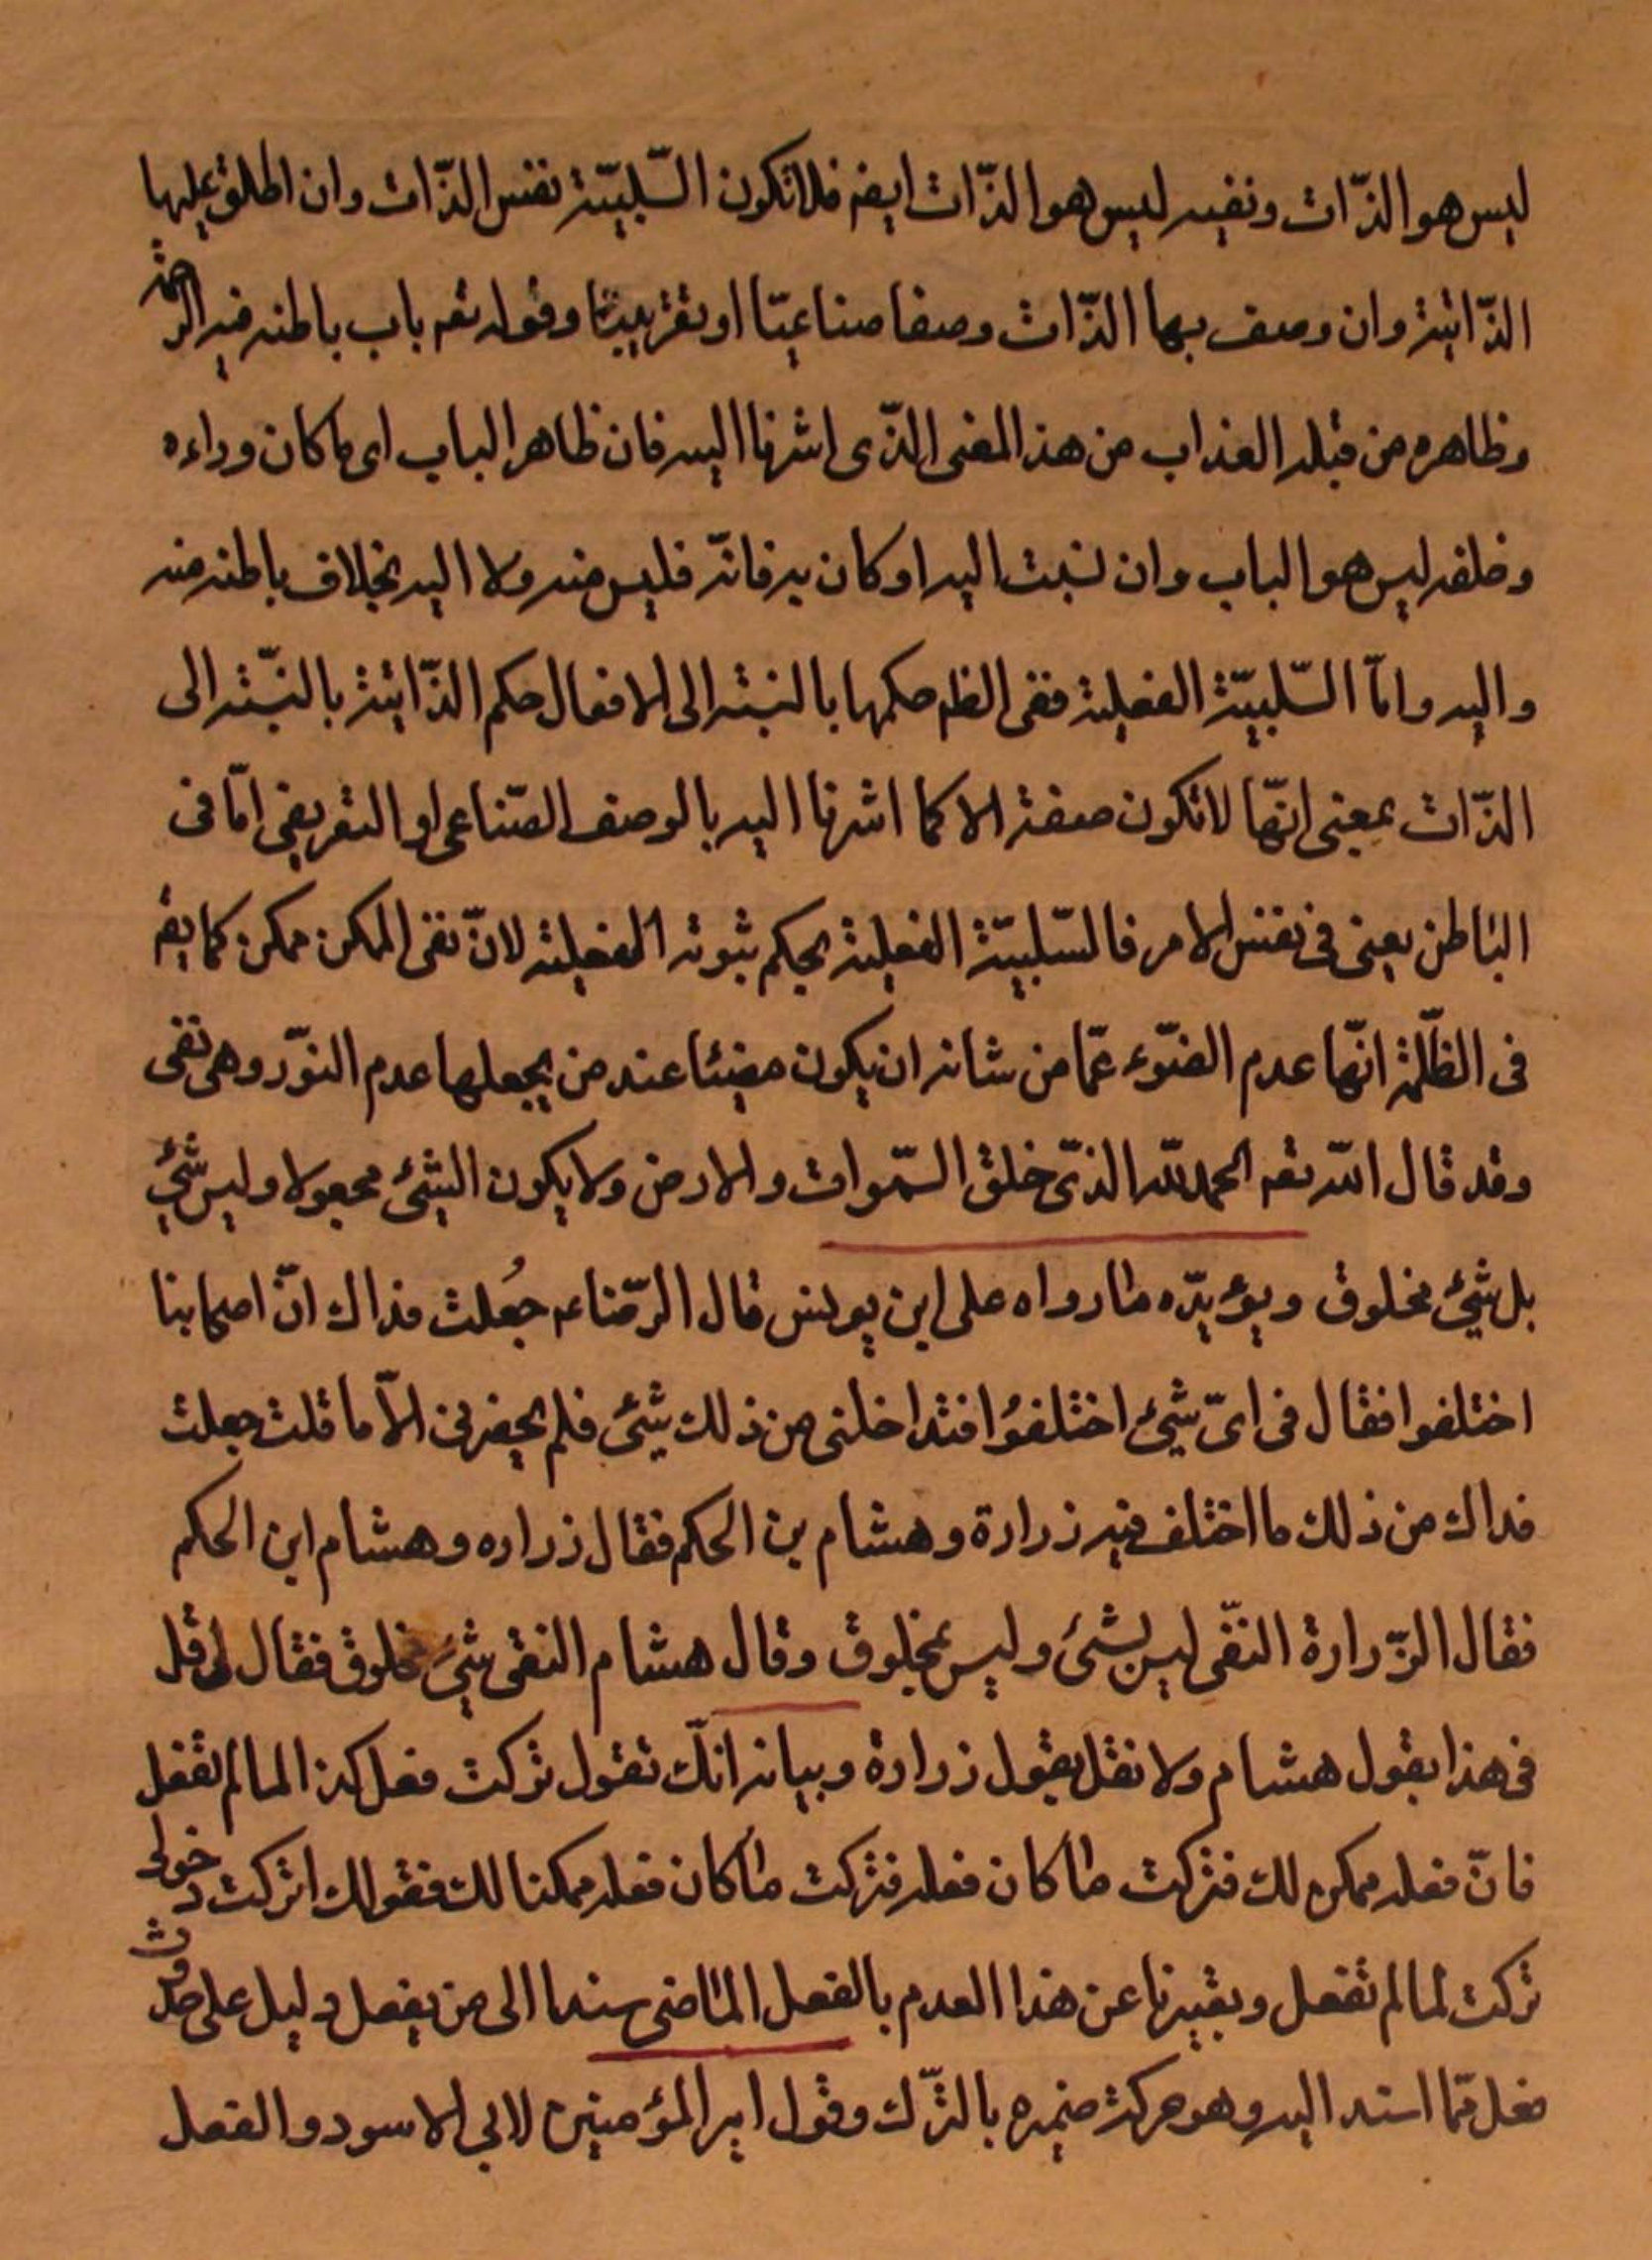 ليس هو الذّات ونفيه ليس هو الذّات ايضه فلا تكون السّلبيّة نفس الذّات وان اطلق عليها
الذّاتية وان وصف بها الذّات وصفا صناعيّا او تقريبيّا وقوله تعه باب باطنه فيه الرحمة
وظاهره من قبله العذاب من هذ المعنى الذّى اشرنا اليه فان ظاهر الباب اى ما كان وراءه
وخلفه ليس هو الباب وان نسبت اليه او كان به فانّه فليس منه ولا اليه بخلاف باطنه منه
واليه وامّا السّلبيّة الفعلية ففى الظه حكمها بالنسبته الى الافعال حكم الذّاتية بالنسّبته الى
الذّات بمعنى انّها لا تكون صفة الا كما اشرنا اليه بالوصف الصّناعى او التعريفى امّا فى
الباطن يعنى فى نفس الامر فالسّلبيّة الفعلية بحكم ثبوته الفعلية لانّ نفى الممكن ممكن كما يقه
فى الظّلمة انّها عدم الضّوء عمّا من شانه ان يكون مضيئا عند من يجعلها عدم النوّر وهى نفى
وقد قال الله تعه الحمد لله الذّى خلق السّموات والارض ولا يكون الشيئ مجعولا وليس شيئ
بل شيئ مخلوق ويؤيدّه ما رواه على ابن يونس قال الرّضاء ع جُعلت فداك انّ اصحابنا
اختلفوا فقال فى اىّ شيئ اختلفوُا فتداخلنى من ذلك شيئ فلم يحضرنى الاّ ما قلت جعلت
فداك من ذلك ما اختلف فيه زرارة وهشام بن الحكم فقال زراره وهشام ابن الحكم
فقال الزّرارة النفّى ليس بشئ وليس بمخلوق وقال هشام النفى شيئ مخلوق فقال لى قل
فى هذا بقول هشام ولا نقل بقول زرارة وبيانه انلّك تقول تركت فعل كذ المالم تفعل
فانّ فعله ممكن لك فتركت ما كان فعله فتركت ما كان فعله ممكنا لك فقولك اتركت دخولى
تركت لمالم تفعل وتعبيرنا عن هذا العدم بالفعل الماضى سندا الى من يفعل دليل على حدوث
فعل ممّا استد اليه وهو حركت ضميره بالترّك وقول امير المؤمنين لابى الاسود والفعل